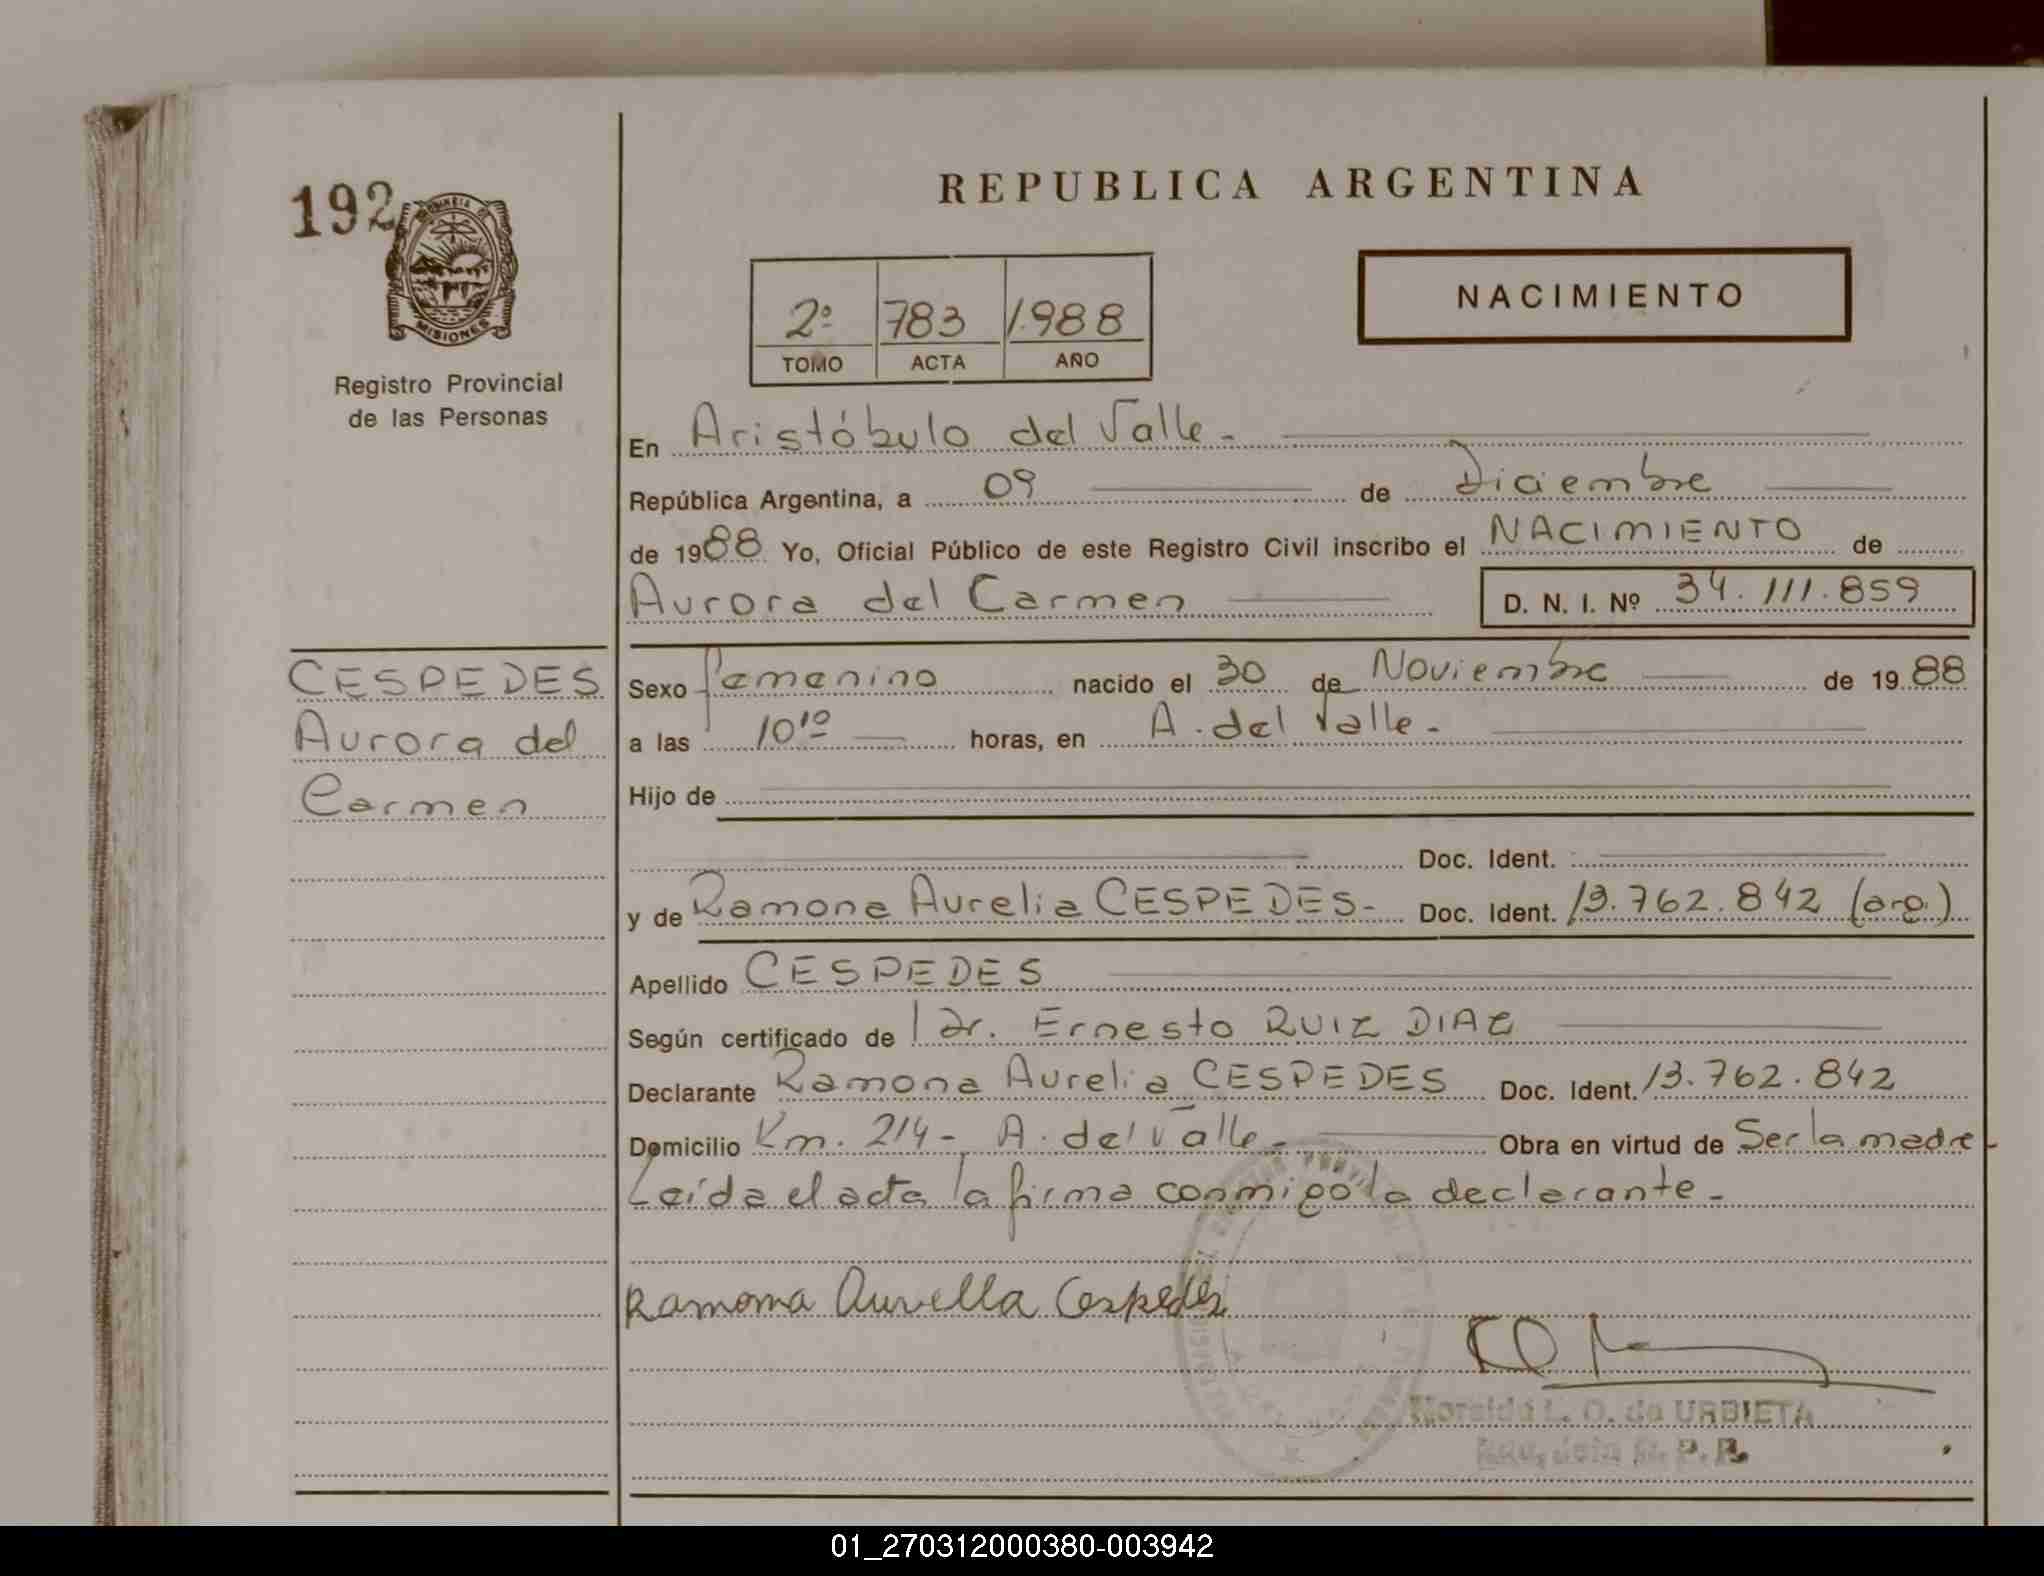 192
PROVINCIA DE
MISIONES
Registro Provincial
de las Personas
CESPEDES
Aurora del
Carmen
REPUBLICA ARGENTINA
2º 783 1.988
TOMO ACTA AÑO
NACIMIENTO
En Aristóbulo del Valle -
República Argentina, a 09 de Diciembre
de 1988 Yo, Oficial Público de este Registro Civil inscribo el NACIMIENTO de
Aurora del Carmen D. N. I. Nº 34.111.859
Sexo femenino nacido el 30 de Noviembre de 1988
a las 10¹⁰ horas, en A. del Valle -
Hijo de
Doc. Ident.
y de Ramona Aurelia CESPEDES - Doc. Ident. 13.762.842 (arg.)
Apellido CESPEDES
Según certificado de Dr. Ernesto RUIZ DIAZ
Declarante Ramona Aurelia CESPEDES Doc. Ident. 13.762.842
Domicilio Km. 214 - A. del Valle - Obra en virtud de Ser la madre -
Leída el acta la firma conmigo la declarante -
Ramona Aurella Cespedes
L. O. de URBIETA
R. P. P.
01_270312000380-003942